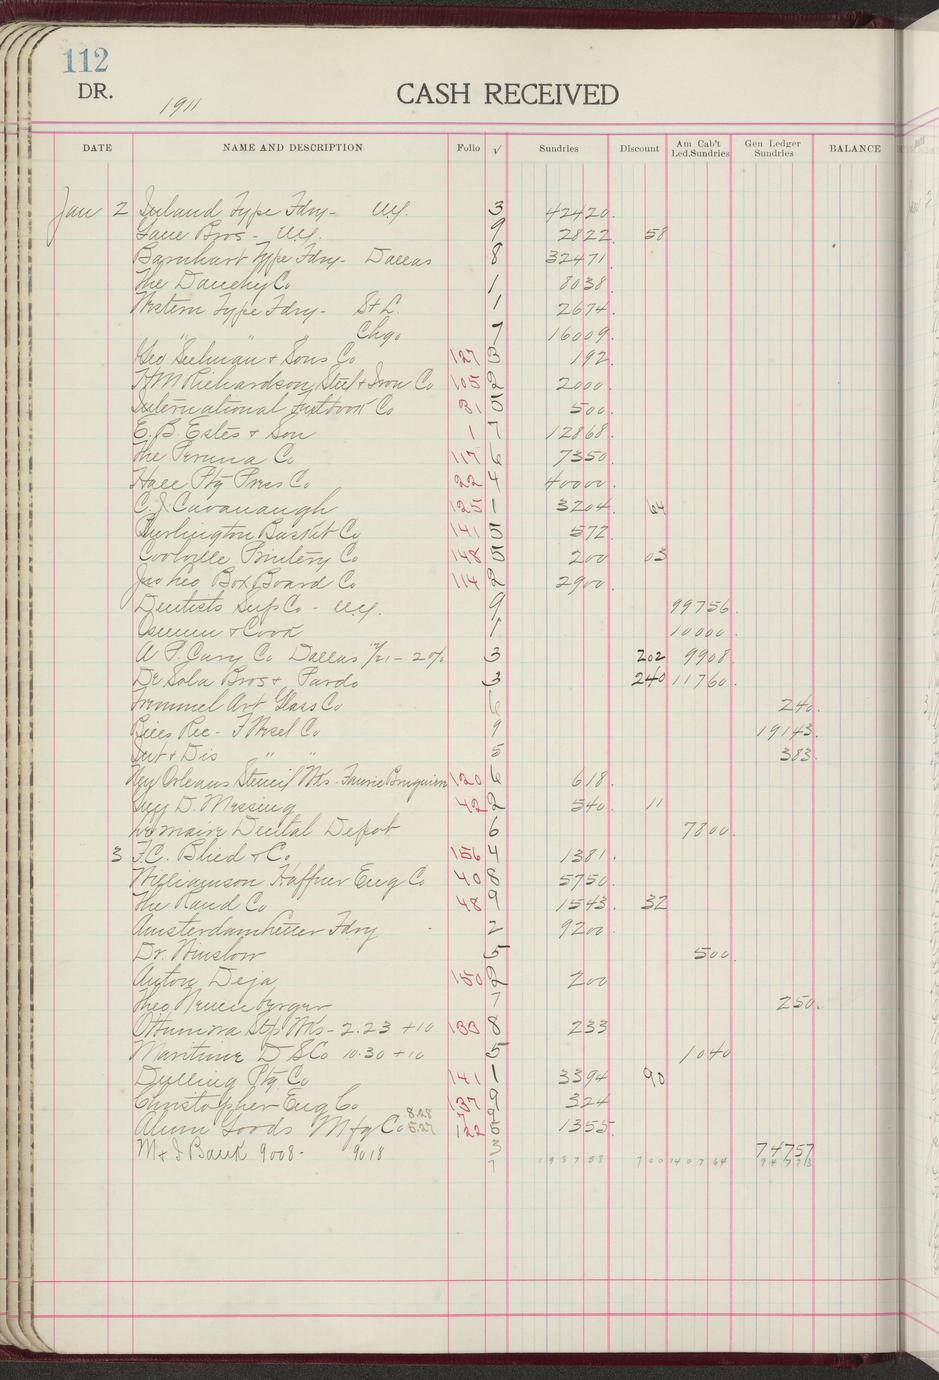 112
DR.
1911
CASH RECEIVED
DATE NAME AND DESCRIPTION Folio √ Sundries Discount Am Cab't Led.Sundries Gen Ledger Sundries BALANCE
Jan 2 Inland Type Fdry - N.Y. 3 42420
Lane Bros - N.Y. 9 2822 58
Barnhart Type Fdry - Dallas 8 32471
The Dauchy Co 1 8038
Western Type Fdry - St L. 1 2674
" " Chgo 7 16009
Geo Seelman & Sons Co 127 3 192
H M Richardson Steel & Iron Co 105 2 2000
International Co 31 5 500
E. B. Estes & Son 1 7 12868
The Peruna Co 117 6 7350
Hall Ptg Press Co 22 4 40000
C. J. Cavanaugh 125 1 3204 64
Burlington Basket Co 141 5 572
Coolville Printery Co 148 5 200 03
Box Board Co 114 2 2900
Dentists Sup Co - N.Y. 9 99756
& Cook 1 10000
A P. Cary Co Dallas 12/21 - 2% 3 202 9908
De Sola Bros & Pardo 3 240 11760
Art Glass Co 6 240
Bills Rec - F Wesel Co 9 19143
Int & Dis " " 5 383
New Orleans Stencil Wks - 120 6 618
Guy D. Messing 42 2 540 11
Lemaire Dental Depot 6 7800
3 F.C. Blied & Co 156 4 1381
Williamson Haffner Eng Co 40 8 5750
The Rand Co 48 9 1543 32
Amsterdam Fdry 2 9200
Dr. Winslow 5 500
Anton Deja 150 2 200
Theo Neuenberger 7 250
Ottumwa Stp Wks - 2.23 + 10 133 8 233
Maritime D S Co 10.30 + 10 5 1040
Dulling Ptg Co 141 1 3394 90
Christopher Eng Co 137 9 324
8.28
Alum Goods Mfg Co 5.27 122 1355
M & I Bank 9008 - 9018 3 74757
7 198758 700 140764 94773